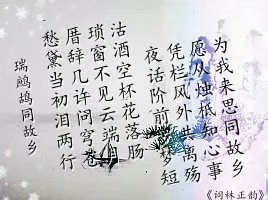 为我来思同故乡
愿从烛柢知心事
凭栏风外世离殇
夜话阶前诉梦短
沽酒空杯花落肠
琐窗不见云端月
厝辞几许问穹苍
愁黛当初泪两行
瑞鹧鸪同故乡
《词林正韵》